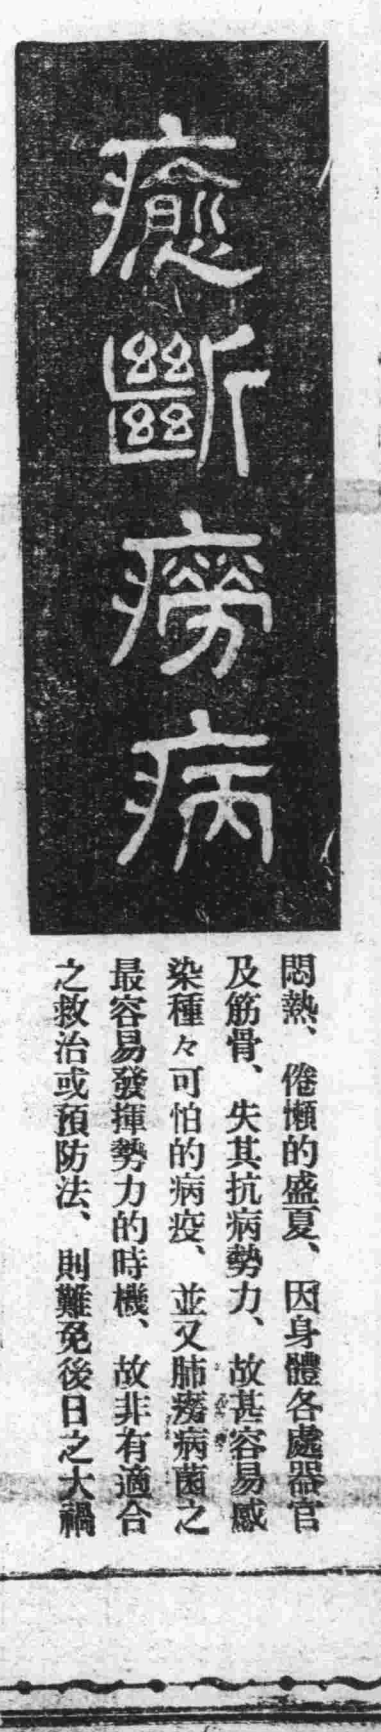 癒斷癆病
悶熱、倦懶的盛夏、因身體各處器官
及筋骨、失其抗病勢力、故甚容易感
染種々可怕的病疫、並又肺癆病菌之
最容易發揮勢力的時機、故非有適合
之救治或預防法、則難免後日之大禍